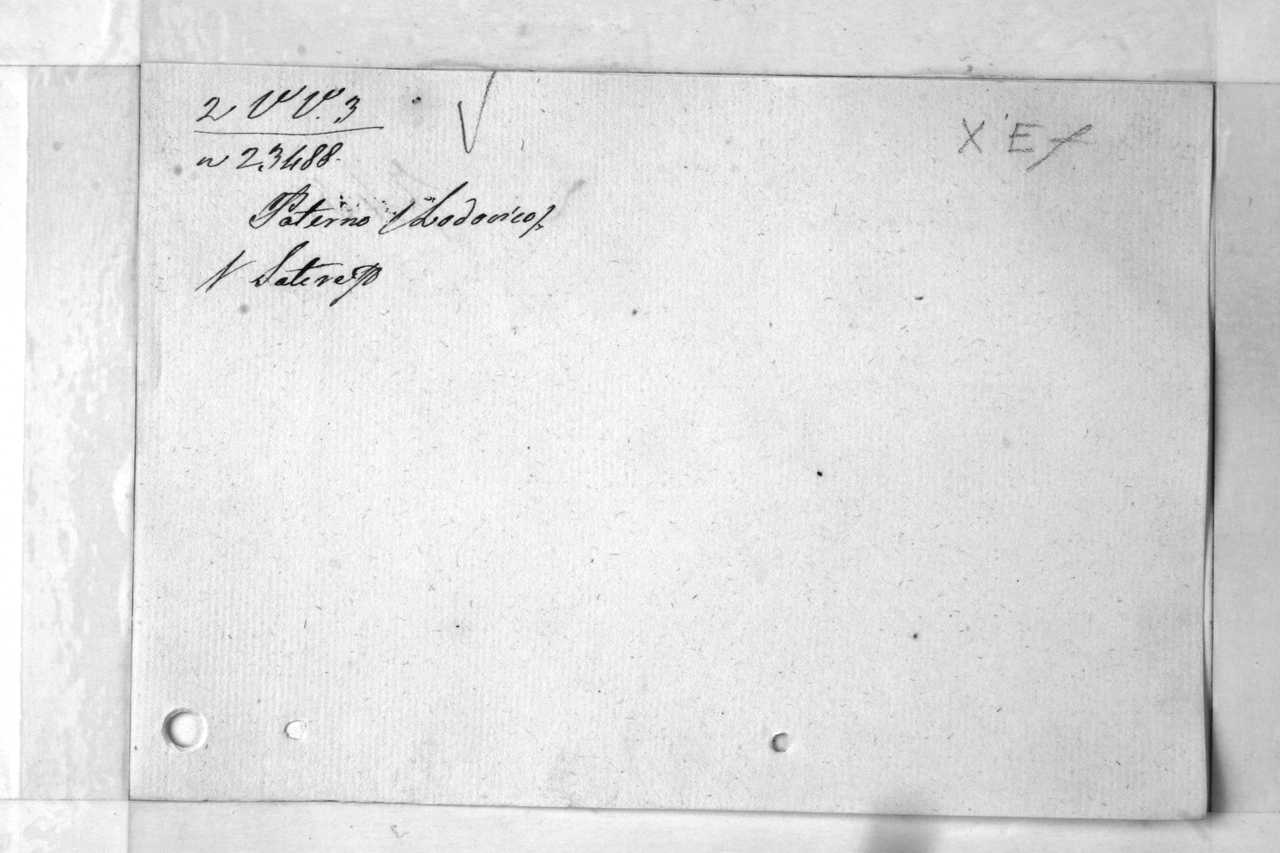 2 VV. 3
n 23488.
Paterno (Lodovico).
V Satire
X'E